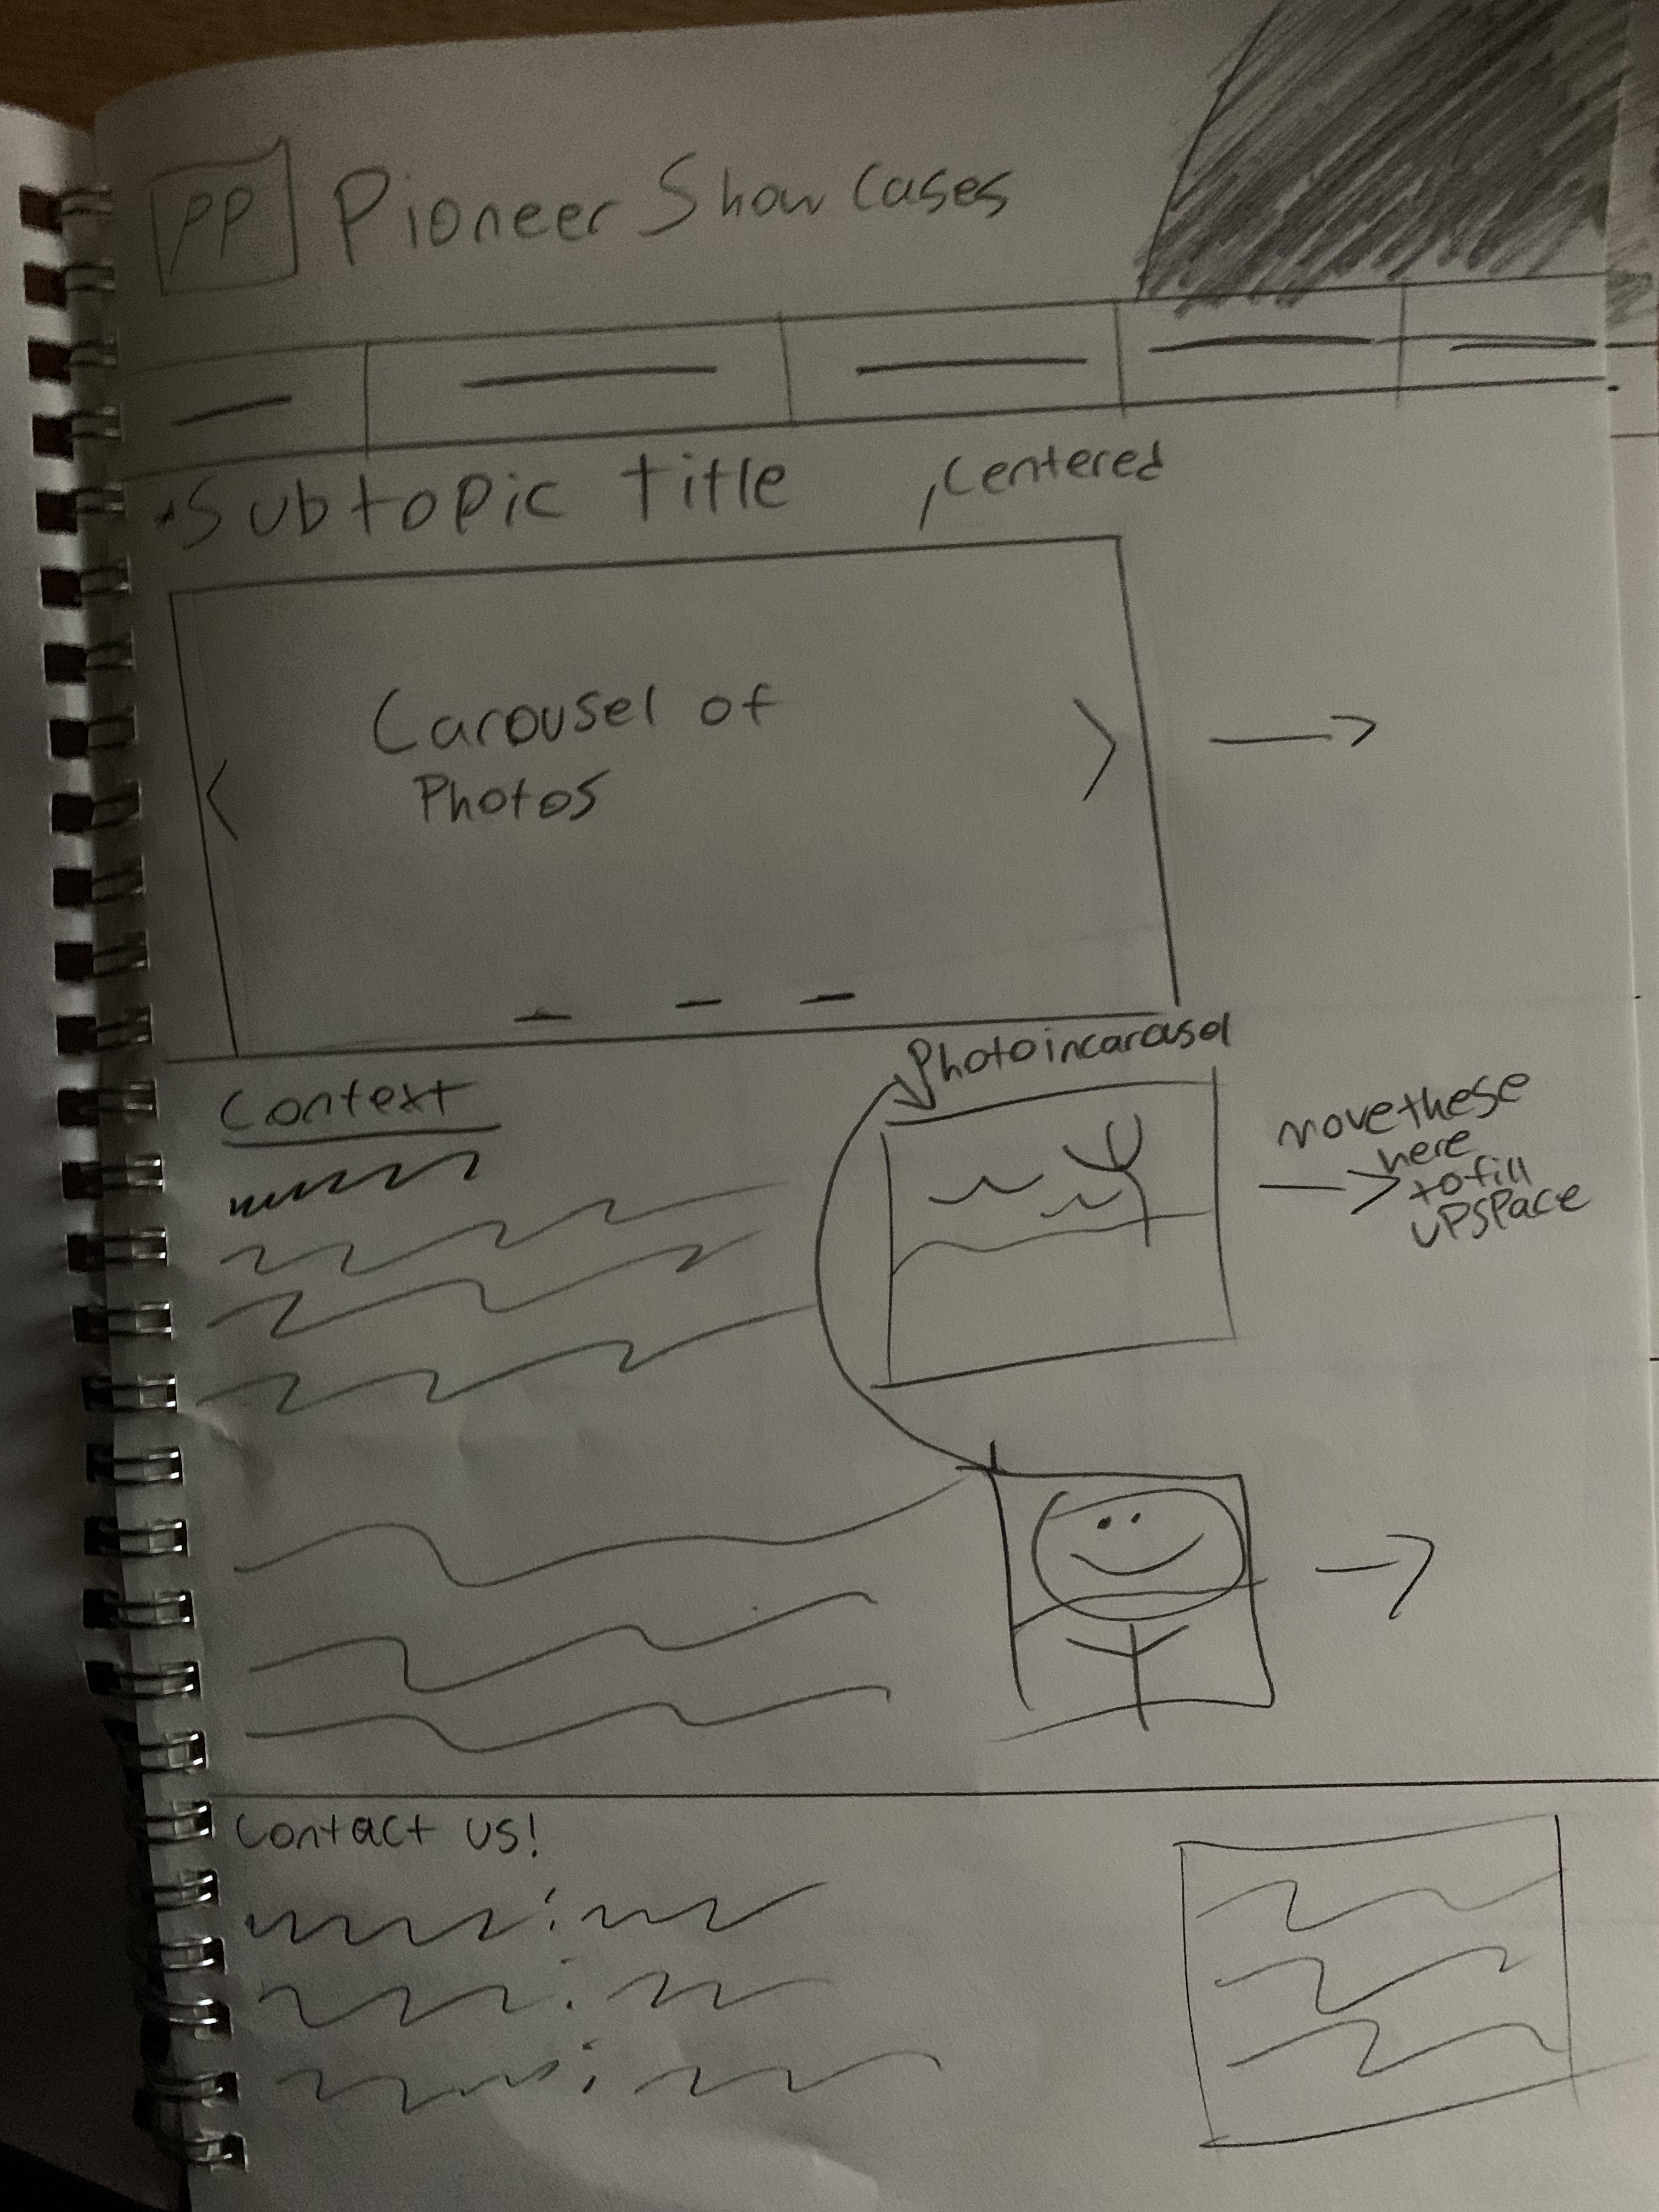 PP Pioneer Showcases
*Subtopic title
,centered
Carousel of
Photos
Photo in carousel
Context
move these
here
to fill
up space
Contact us!